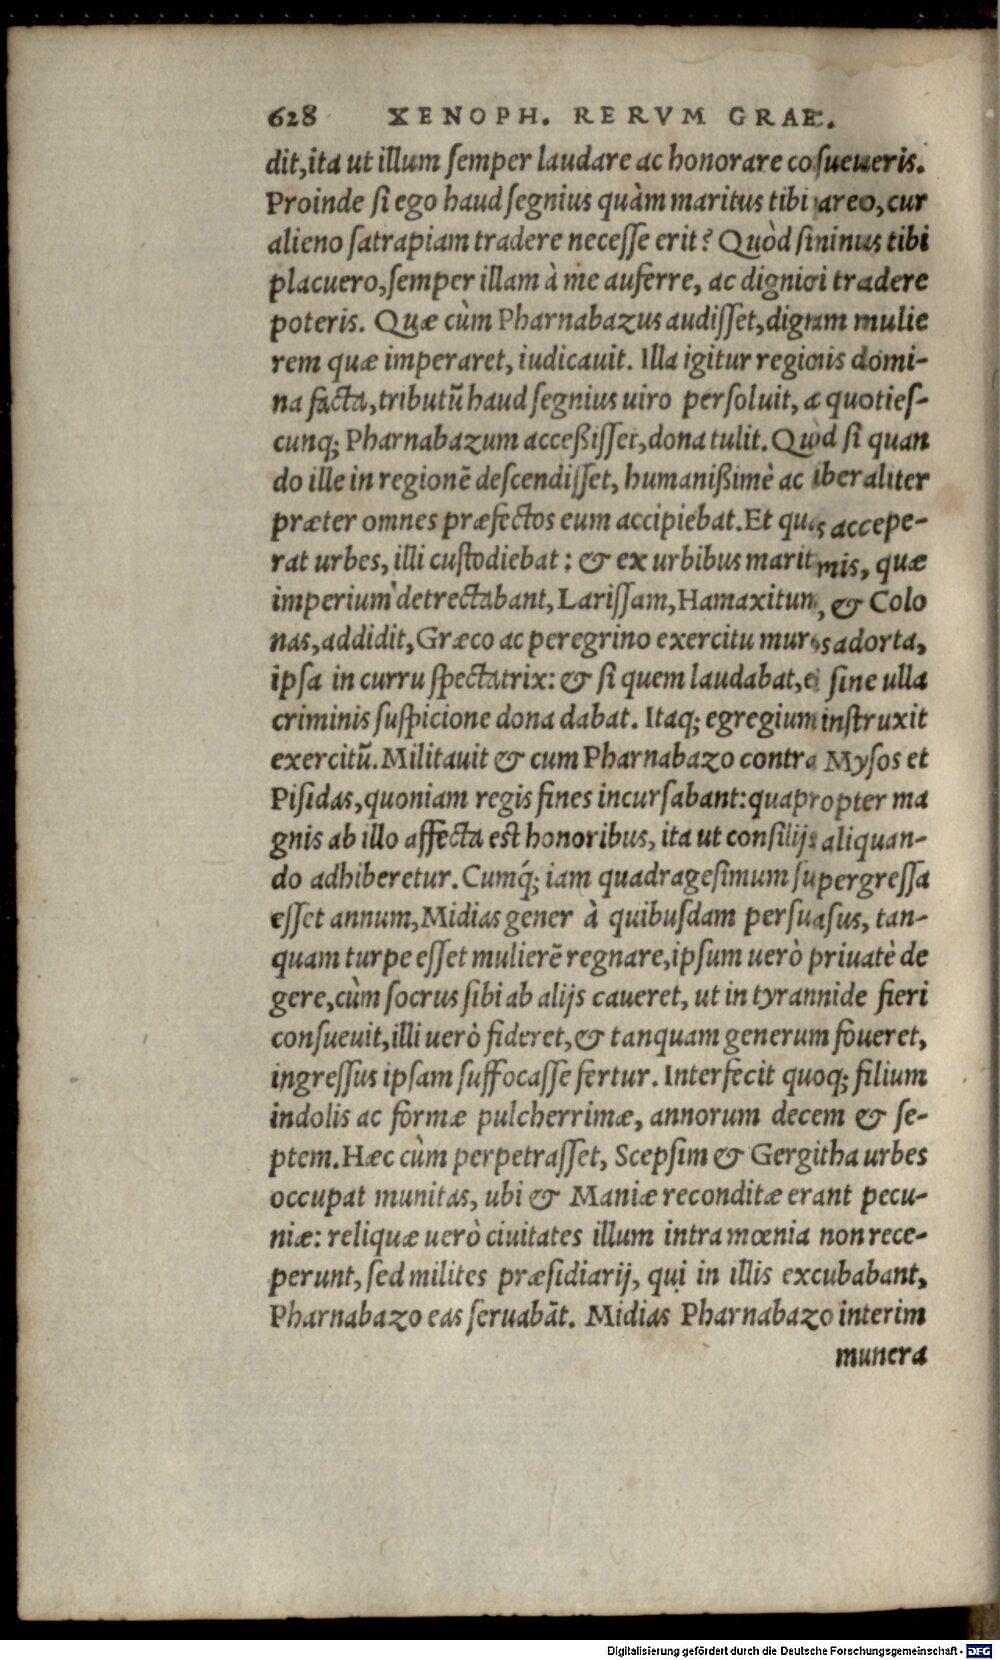 628 XENOPH. RERVM GRAE.
dit, ita ut illum semper laudare ac honorare cosueueris.
Proinde si ego haud segnius quàm maritus tibi pareo, cur
alieno satrapiam tradere necesse erit? Quòd si minus tibi
placuero, semper illam à me auferre, ac digniori tradere
poteris. Quæ cùm Pharnabazus audisset, dignam mulie
rem quæ imperaret, iudicauit. Illa igitur regionis domi-
na facta, tributū haud segnius uiro persoluit, ac quoties-
cunq; Pharnabazum acceßisset, dona tulit. Quòd si quan
do ille in regionē descendisset, humanißimè ac liberaliter
præter omnes præfectos eum accipiebat. Et quas accepe-
rat urbes, illi custodiebat: & ex urbibus maritimis, quæ
imperium detrectabant, Larissam, Hamaxitum, & Colo
nas, addidit, Græco ac peregrino exercitu muros adorta,
ipsa in curru spectatrix: & si quem laudabat, ei sine ulla
criminis suspicione dona dabat. Itaq; egregium instruxit
exercitū. Militauit & cum Pharnabazo contra Mysos et
Pisidas, quoniam regis fines incursabant: quapropter ma
gnis ab illo affecta est honoribus, ita ut consilijs aliquan-
do adhiberetur. Cumq́; iam quadragesimum supergressa
esset annum, Midias gener à quibusdam persuasus, tan-
quam turpe esset mulierē regnare, ipsum uerò priuatè de
gere, cùm socrus sibi ab alijs caueret, ut in tyrannide fieri
consueuit, illi uerò fideret, & tanquam generum foueret,
ingressus ipsam suffocasse fertur. Interfecit quoq; filium
indolis ac formæ pulcherrimæ, annorum decem & se-
ptem. Hæc cùm perpetrasset, Scepsim & Gergitha urbes
occupat munitas, ubi & Maniæ reconditæ erant pecu-
niæ: reliquæ uerò ciuitates illum intra mœnia non rece-
perunt, sed milites præsidiarij, qui in illis excubabant,
Pharnabazo eas seruabāt. Midias Pharnabazo interim
munera
Digitalisierung gefördert durch die Deutsche Forschungsgemeinschaft - DFG